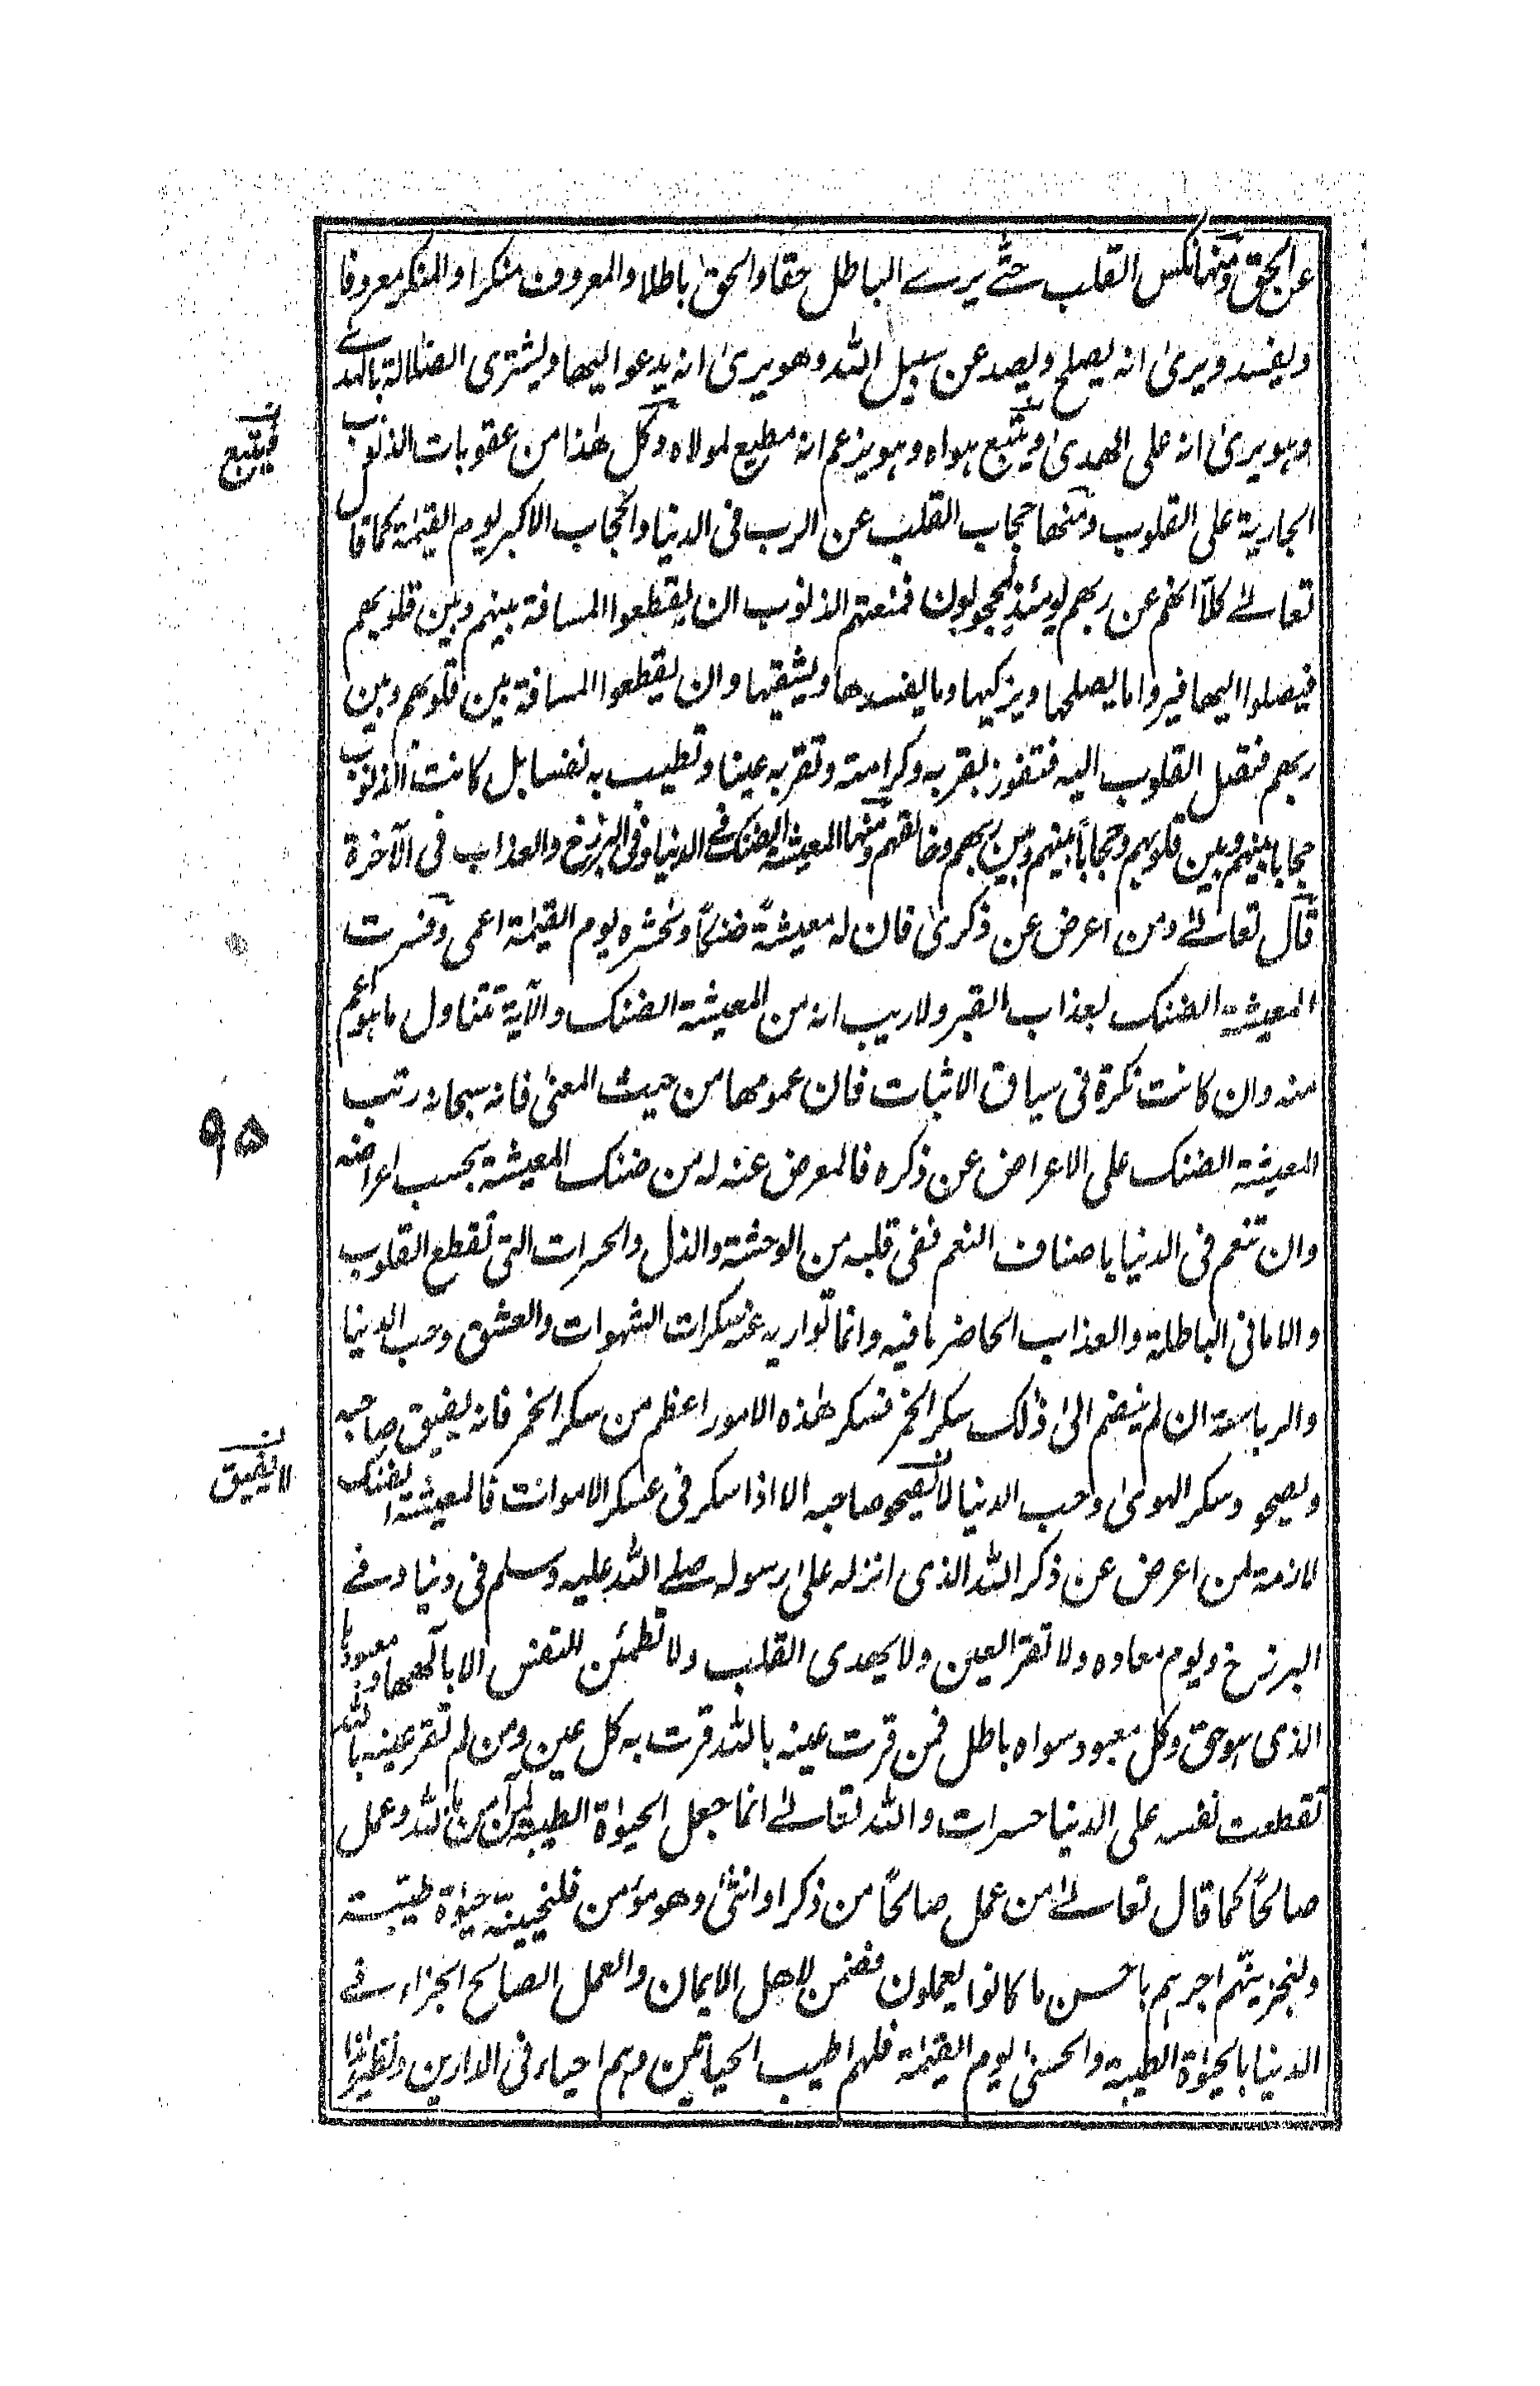 عن الحق ومنها نكس القلب حتے يرے الباطل حقا والحق باطلا والمعروف منكرا والمنكر معروفا
ويفسد ويرىٰ انه يصلح ويصد عن سبيل الله وهو يرىٰ انه يدعوا اليها ويشترى الضلالة بالهدے
وهو يرىٰ انه على الهدىٰ ويتبع هواه وهو يزعم انه مطيع لمولاه وكل هٰذا من عقوبات الذنوب
فيتبع
الجارية على القلوب ومنها حجاب القلب عن الرب فى الدنيا والحجاب الاكبر يوم القيٰمة كما قال
تعالےٰ كلّا انهم عن ربهم يومئذٍ لمحجوبون فمنعتهم الذنوب ان يقطعوا المسافة بينهم وبين قلوبهم
فيصلوا اليها فيروا ما يصلحها ويزكيها وما يفسدها ويشقيها وان يقطعوا المسافة بين قلوبهم وبين
ربهم فتصل القلوب اليه فتفوز بقربه وكرامته وتقرّ به عينا وتطيب به نفسا بل كانت الذنوب
حجابا بينهم وبين قلوبهم وحجاباً بينهم وبين ربهم وخالقهم ومنها المعيشة الضنك فے الدنيا وفى البرزخ والعذاب فى الآخرة
قال تعالےٰ ومن اعرض عن ذكرىٰ فان له معيشةً ضنكاً ونحشره يوم القيٰمة اعمى وفسرت
المعيشة الضنك بعذاب القبر ولاريب انه من المعيشة الضنك والآية تتناول ما هو اعم
منه وان كانت نكرة فى سياق الاثبات فان عمومها من حيث المعنىٰ فانه سبحانه رتب
٩٥
المعيشة الضنك على الاعراض عن ذكره فالمعرض عنه له من ضنك المعيشة بحسب اعراضه
وان تنعم فى الدنيا باصناف النعم ففى قلبه من الوحشة والذل والحسرات التى تقطع القلوب
والامانى الباطلة والعذاب الحاضر ما فيه وانما تواريه عنه سكرات الشهوات والعشق وحب الدنيا
والرياسة ان لم ينضم الىٰ ذٰلك سكر الخمر فسكر هٰذه الامور اعظم من سكر الخمر فانه يفيق صاحبه
ويصحو وسكر الهوىٰ وحب الدنيا لا يصحو صاحبه الا اذا سكر فى عسكر الاموات فالمعيشة الضنك
لا يفيق
لازمة لمن اعرض عن ذكر الله الذى انزله علىٰ رسوله صلے الله عليه وسلم فى دنياه وفے
البرزخ ويوم معاده ولا تقر العين ولا يهدى القلب ولا تطمئن النفس الا بآلهها ومعبودها
الذى هو حق وكل معبود سواه باطل فمن قرت عينه بالله قرت به كل عين ومن لم تقر عينه بالله
تقطعت نفسه على الدنيا حسرات والله تعالےٰ انما جعل الحيوٰة الطيبة لمن آمن بالله وعمل
صالحاً كما قال تعالےٰ من عمل صالحاً من ذكر او انثىٰ وهو مؤمن فلنحيينه حيوٰة طيّبة
ولنجزينّهم اجرهم باحسن ما كانوا يعملون فضمن لاهل الايمان والعمل الصالح الجزاء فے
الدنيا بالحيوٰة الطيبة والحسنىٰ يوم القيٰمة فلهم اطيب الحياتين وهم احياء فى الدارين ونظير هٰذا